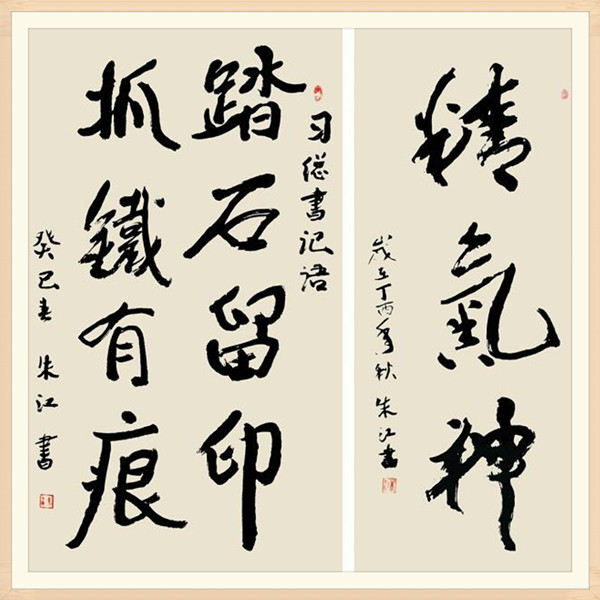 精氣神
歲在丁酉年秋 朱江書
习总書记语
踏石留印
抓鐵有痕
癸巳春 朱江書